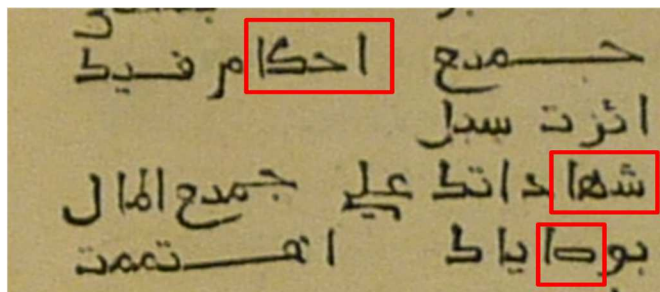 جميع احكام فيك
اثرت سبل
شهاداتك علي جميع المال
بوصاياك اهتممت